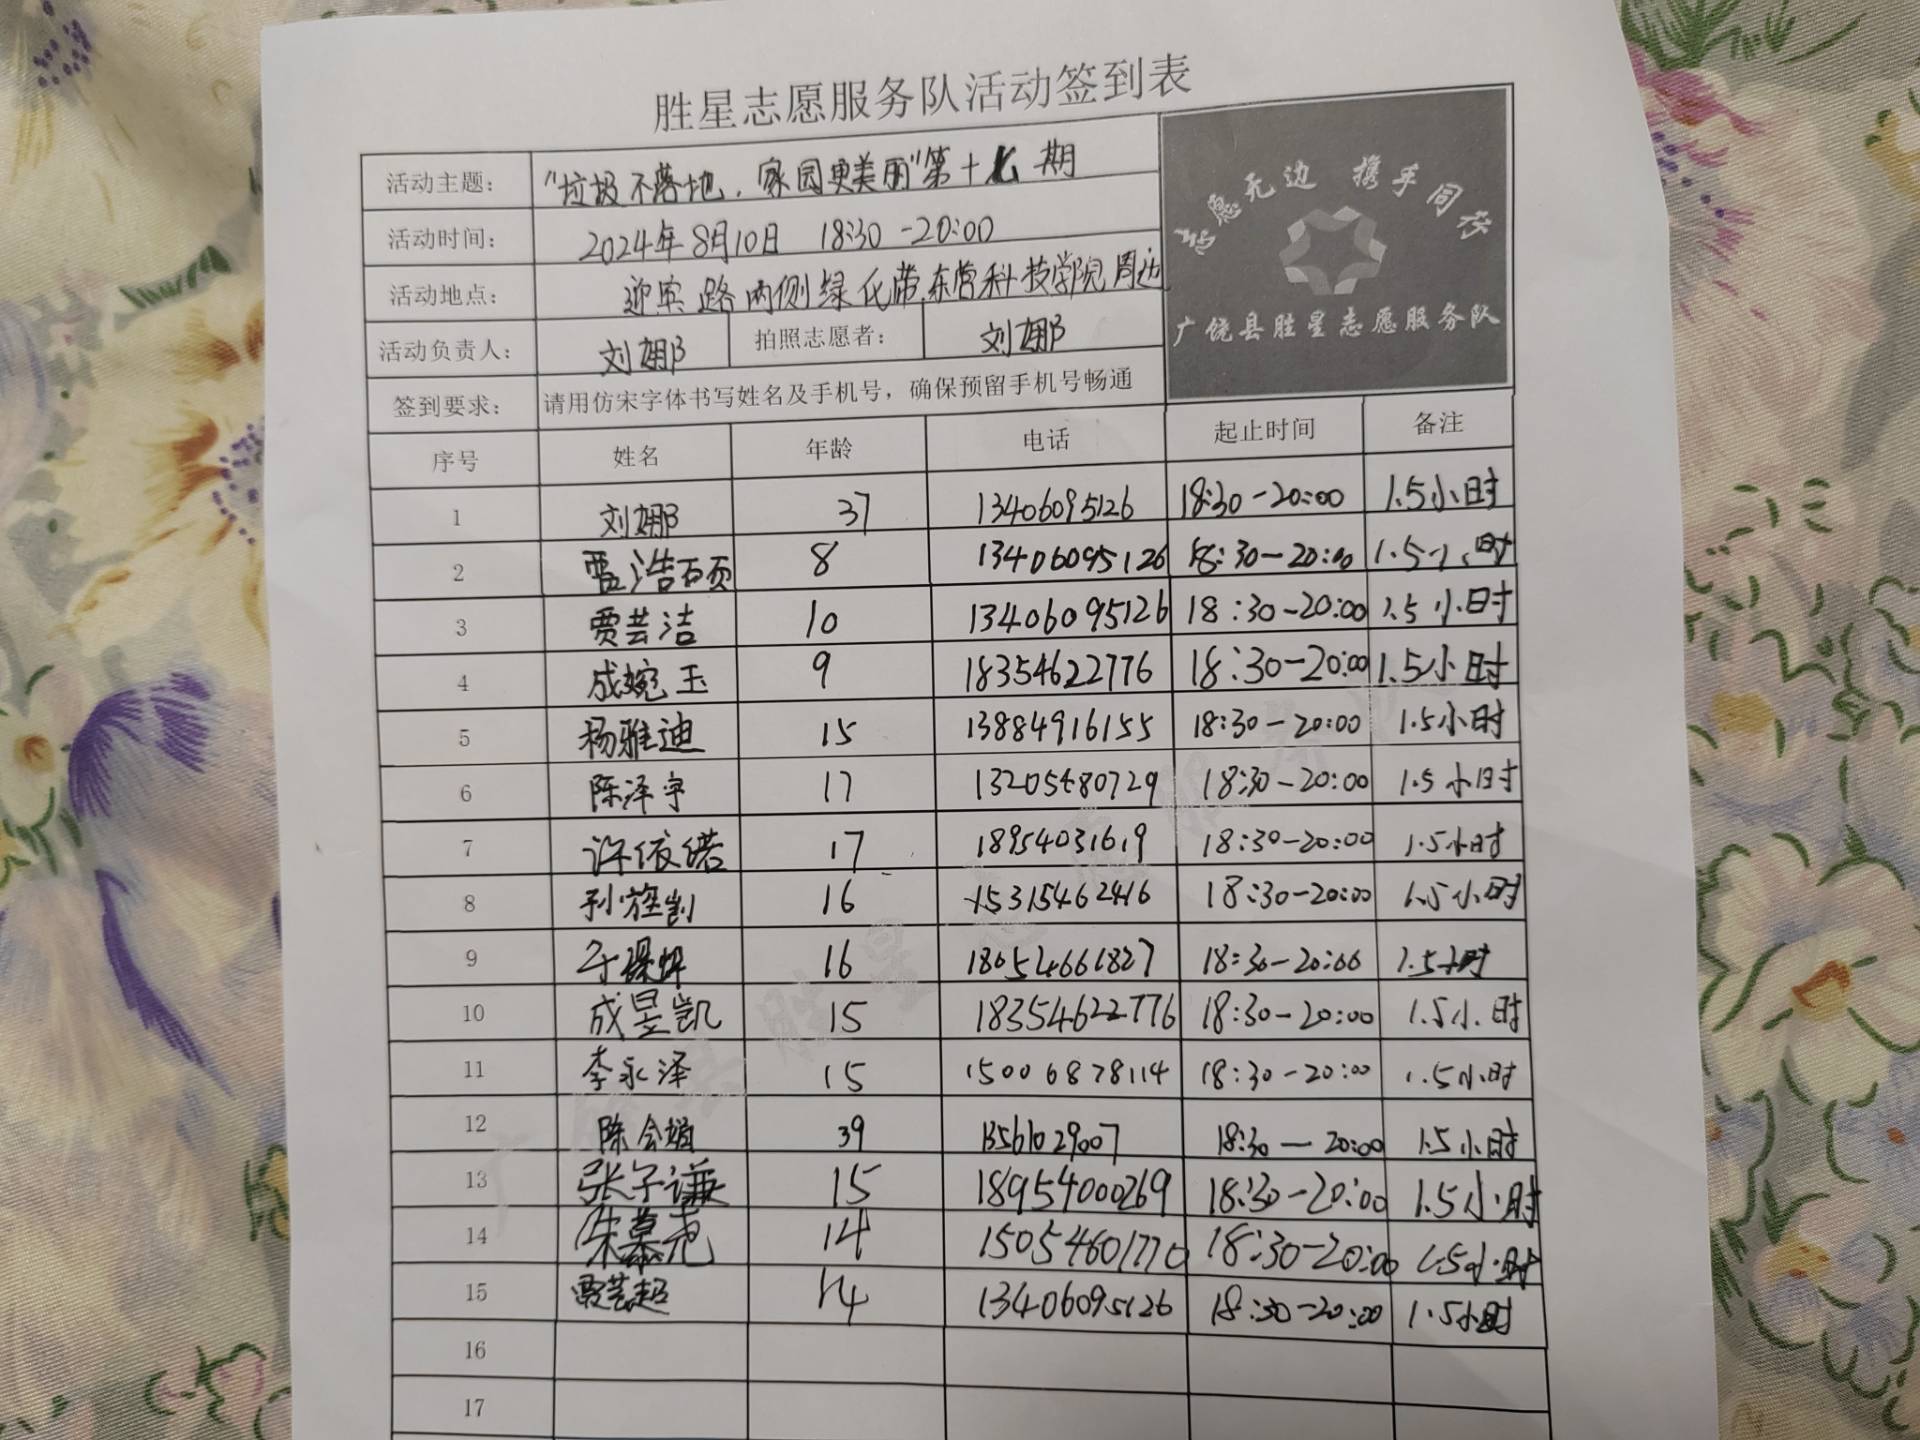 胜星志愿服务队活动签到表
活动主题： "垃圾不落地，家园更美丽"第十 期
志愿无边 携手同行
活动时间： 2024年8月10日 18:30-20:00
活动地点： 迎宾路两侧绿化带,东营科技学院周边
广饶县胜星志愿服务队
活动负责人： 刘娜 拍照志愿者： 刘娜
签到要求： 请用仿宋字体书写姓名及手机号，确保预留手机号畅通
序号 姓名 年龄 电话 起止时间 备注
1 刘娜 37 13406095126 18:30-20:00 1.5小时
2 贾浩硕 8 13406095126 18:30-20:00 1.5小时
3 贾芸洁 10 13406095126 18:30-20:00 1.5小时
4 成婉玉 9 18354622776 18:30-20:00 1.5小时
5 杨雅迪 15 13884916155 18:30-20:00 1.5小时
6 陈泽宇 17 13205480729 18:30-20:00 1.5小时
7 许依诺 17 18954031619 18:30-20:00 1.5小时
8 孙 16 15315462416 18:30-20:00 1.5小时
9 于 16 18054661827 18:30-20:00 1.5小时
10 成昱凯 15 18354622776 18:30-20:00 1.5小时
11 李永泽 15 15006878114 18:30-20:00 1.5小时
12 陈会娟 39 13561029007 18:30-20:00 1.5小时
13 张子谦 15 18954000269 18:30-20:00 1.5小时
14 朱慕尧 14 15054601770 18:30-20:00 1.5小时
15 贾芸超 14 13406095126 18:30-20:00 1.5小时
16
17
广饶县胜星志愿服务队